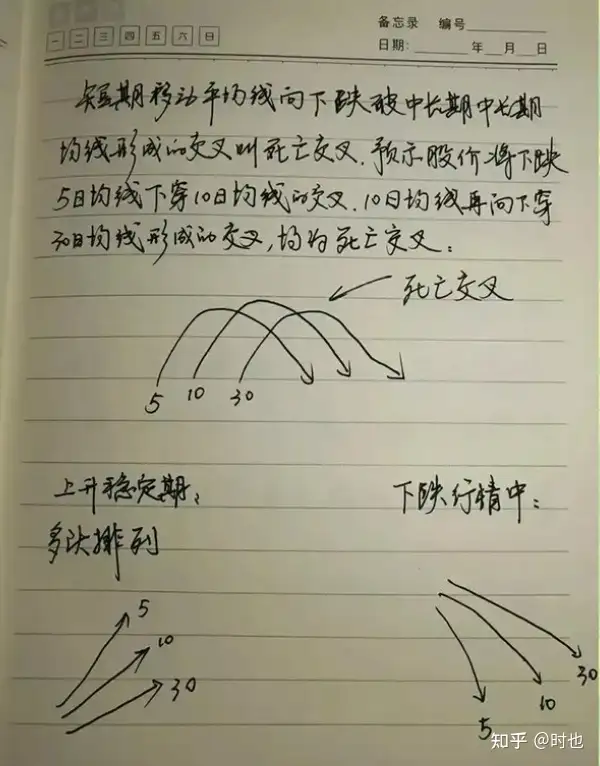 备忘录 编号
一 二 三 四 五 六 日
日期: 年 月 日
短期移动平均线向下跌破中长期中长期
均线形成的交叉叫死亡交叉.预示股价将下跌
5日均线下穿10日均线的交叉.10日均线再向下穿
30日均线形成的交叉,均为死亡交叉:
死亡交叉
5 10 30
上升稳定期:
多头排列
下跌行情中:
5
10
30
30
10
5
知乎 @时也